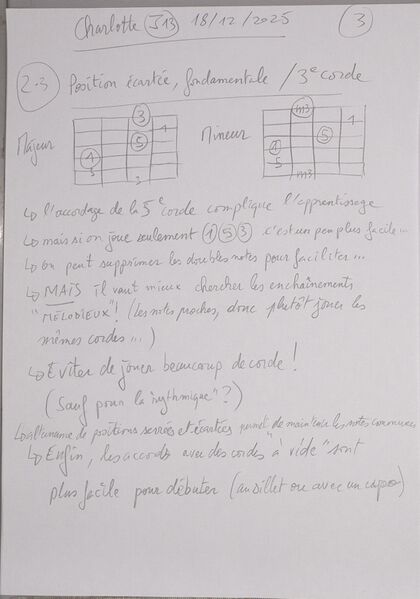 Charlotte J13 18/12/2025 3
2.3 Position écartée, fondamentale / 3e corde
Majeur 3 1 5 1 5 3
Mineur m3 1 5 1 5 m3
↳ l'accordage de la 3e corde complique l'apprentissage
↳ mais si on joue seulement 1 5 3 c'est un peu plus facile...
↳ on peut supprimer les doubles notes pour faciliter...
↳ MAIS il vaut mieux chercher les enchaînements
"MÉLODIEUX"! (les notes proches, donc plutôt jouer les
mêmes cordes...)
↳ Eviter de jouer beaucoup de corde !
(Sauf pour la "rythmique"?)
↳ alternance de positions serrées et écartées permet de maintenir les notes communes
↳ Enfin, les accords avec des cordes "à vide" sont
plus facile pour débuter (au sillet ou avec un capo)